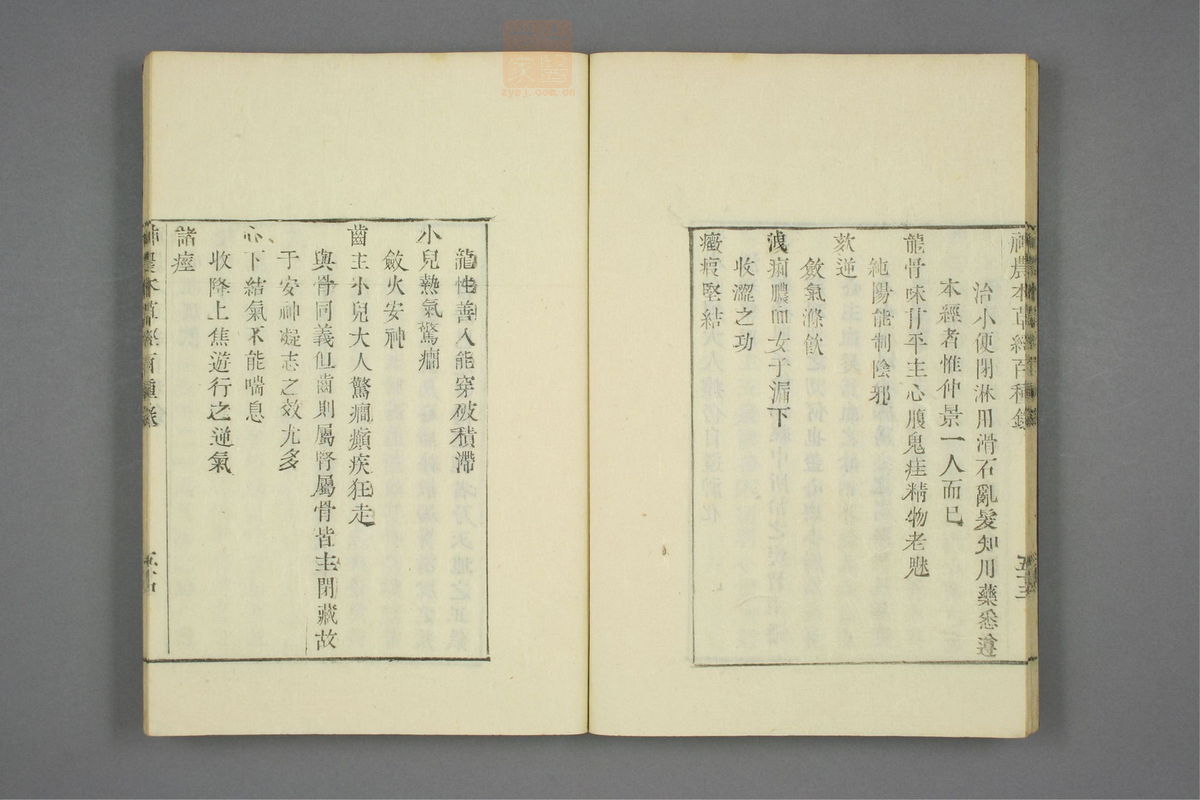 神農本草經百種錄
治小便閉淋用滑石亂髮知用藥悉遵
本經者惟仲景一人而已
龍骨味甘平主心腹鬼疰精物老魅
純陽能制陰邪
欬逆
斂氣滌飲
洩痢膿血女子漏下
收澀之功
癥瘕堅結
龍性善入能穿破積滯
小兒熱氣驚癎
斂火安神
齒主小兒大人驚癎癲疾狂走
與骨同義但齒則屬腎屬骨皆主閉藏故
于安神凝志之效尤多
心下結氣不能喘息
收降上焦遊行之逆氣
諸痙
神農本草經百種錄
zysj.com.cn